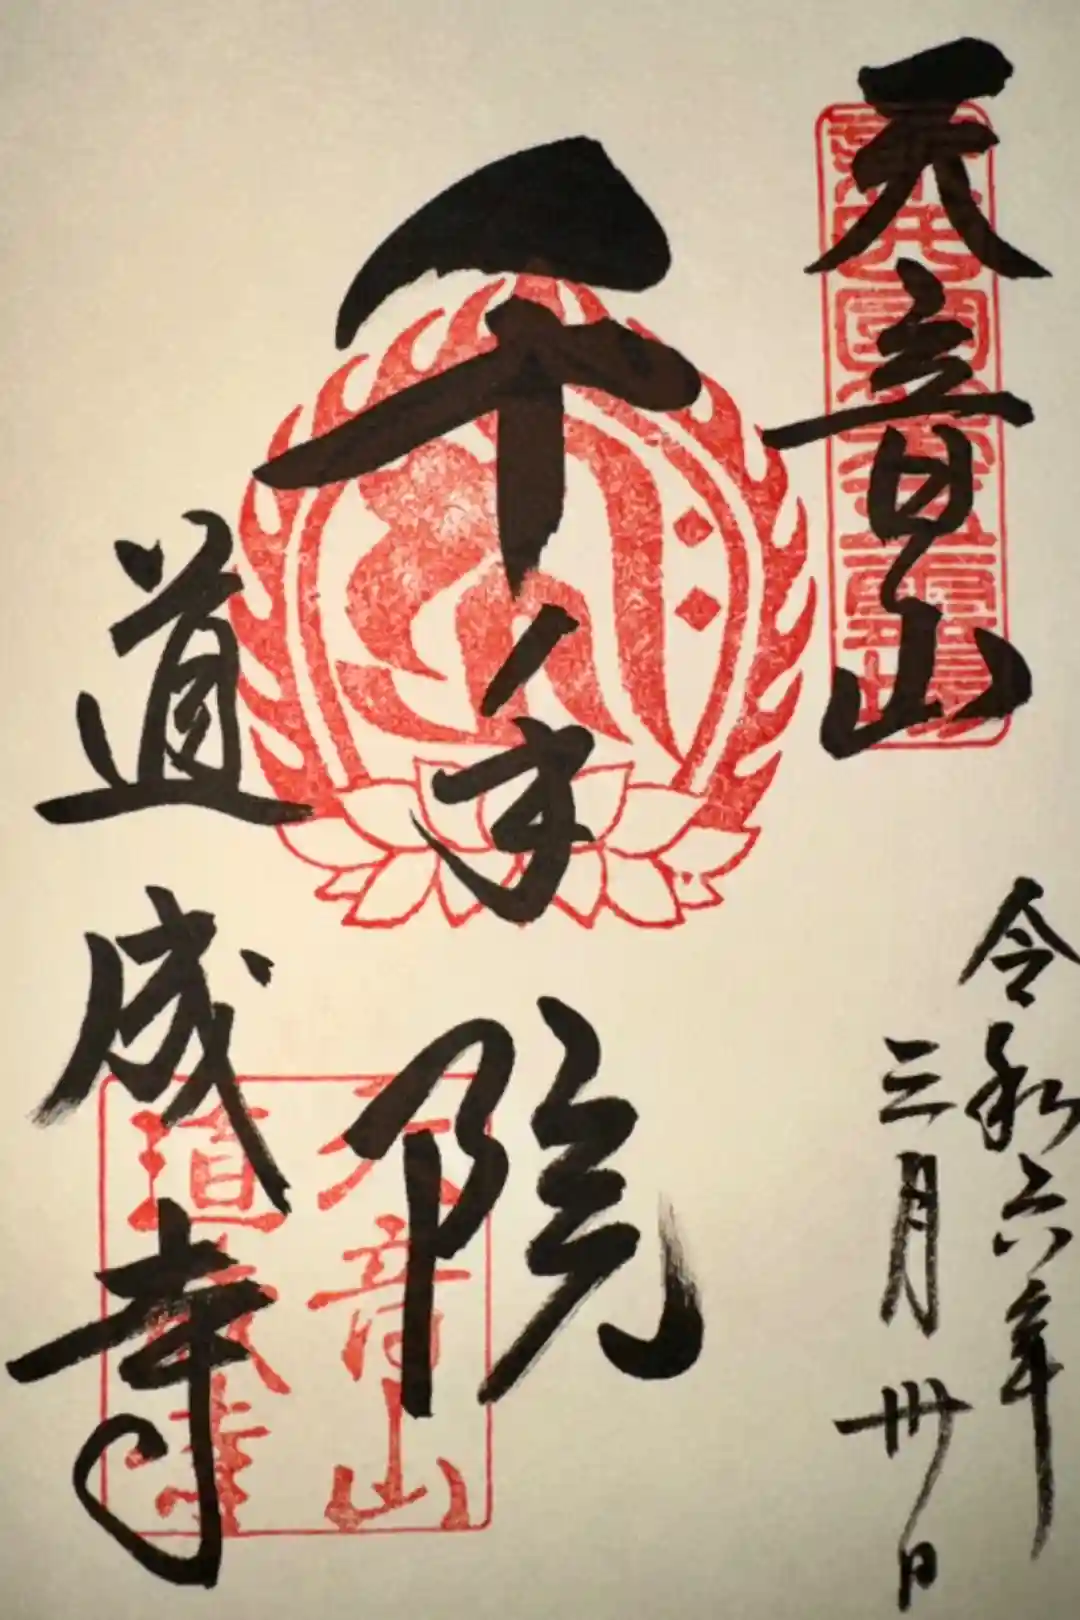 天音山
令和六年
三月卅日
千手院
道成寺
天音山
道成寺